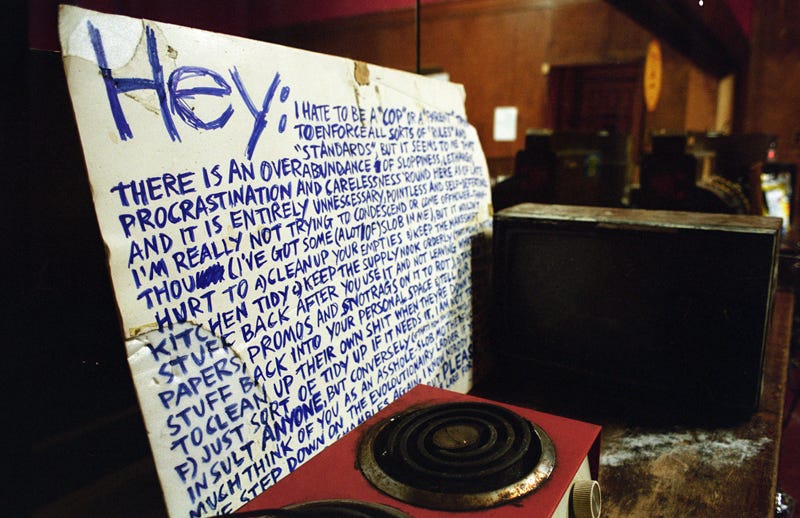 Hey:
I HATE TO BE A "COP" OR A "PARENT"
TO ENFORCE ALL SORTS OF "RULES" AND
"STANDARDS", BUT IT SEEMS TO ME THAT
THERE IS AN OVERABUNDANCE OF SLOPPINESS, LETHARGY,
PROCRASTINATION AND CARELESSNESS 'ROUND HERE AS OF LATE
AND IT IS ENTIRELY UNNESCESSARY, POINTLESS AND SELF-DEFEATING
I'M REALLY NOT TRYING TO CONDESCEND OR COME OFF
THOU (I'VE GOT SOME (A LOT OF) SLOB IN ME), BUT IT WOULDN'T
HURT TO A) CLEAN UP YOUR EMPTIES B) KEEP THE
KITCHEN TIDY C) KEEP THE SUPPLY NOOK ORDERLY
STUFF BACK AFTER YOU USE IT AND NOT LEAVING
PAPERS PROMOS AND SNOTRAGS ON IT TO ROT
STUFF BACK INTO YOUR PERSONAL SPACE
TO CLEAN UP THEIR OWN SHIT WHEN THEY'RE
F) JUST SORT OF TIDY UP IF IT NEEDS IT.
INSULT ANYONE, BUT CONVERSELY
MUCH THINK OF YOU AS AN ASSHOLE, SLOB
STEP DOWN ON THE EVOLUTIONARY LADDER
AGAIN PLEASE